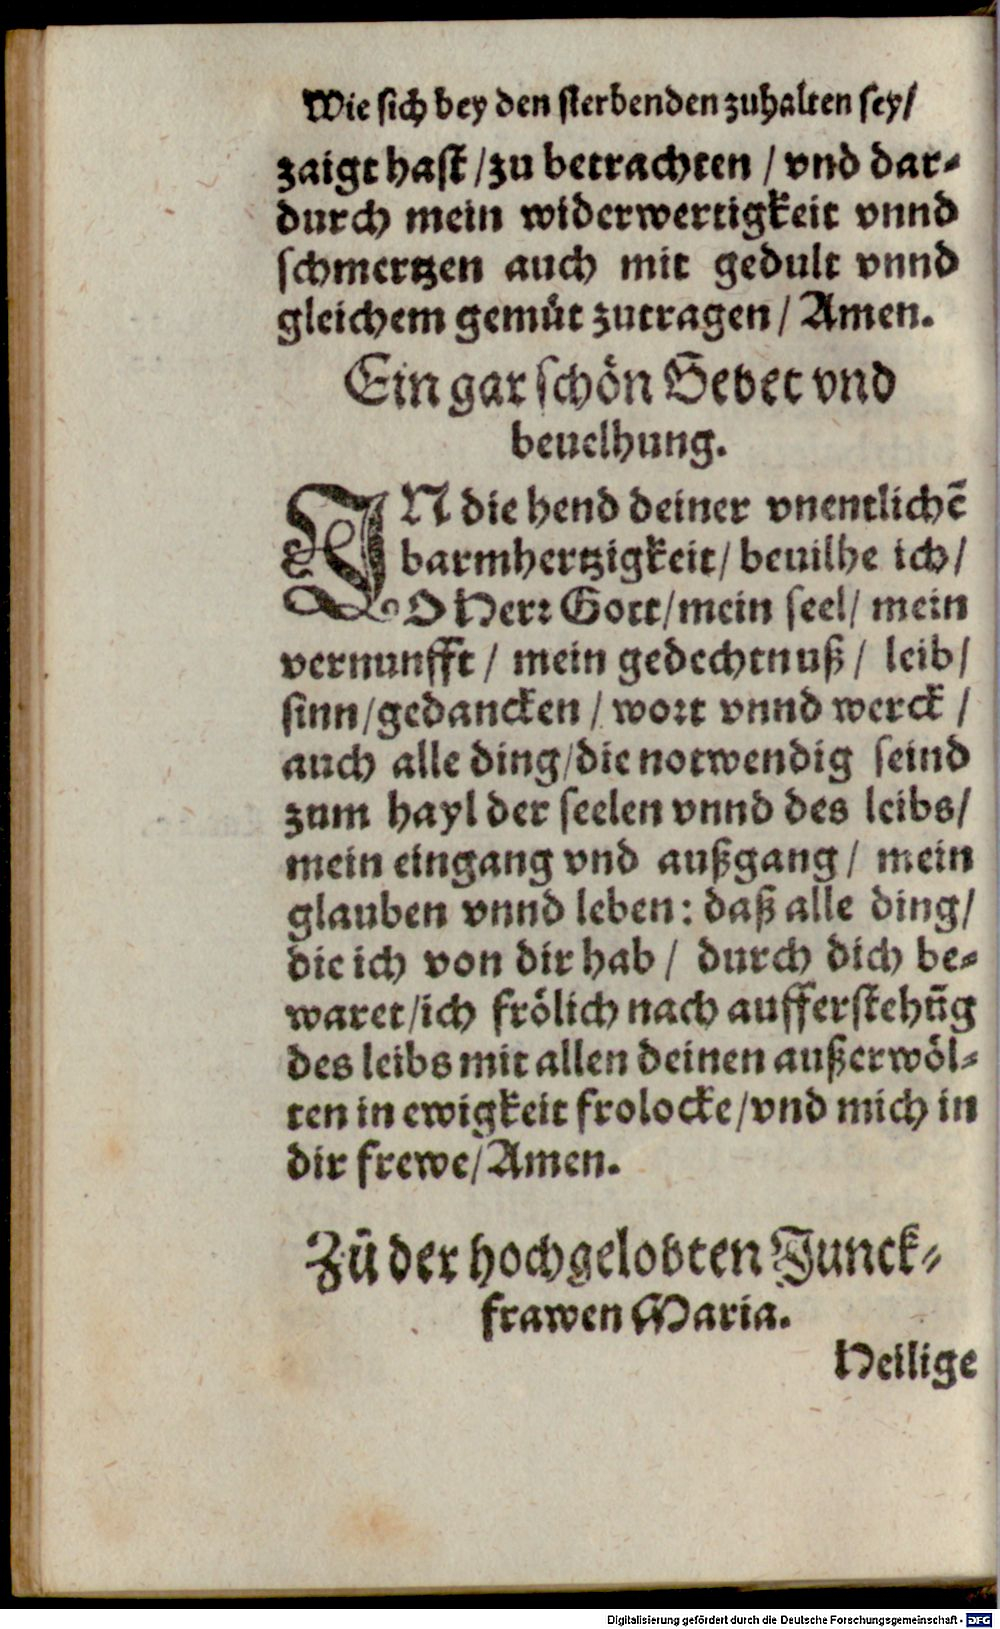 Wie sich bey den sterbenden zuhalten sey/
zaigt hast / zu betrachten / vnd dar-
durch mein widerwertigkeit vnnd
schmertzen auch mit gedult vnnd
gleichem gemüt zutragen / Amen.
Ein gar schön Gebet vnd
beuelhung.
IN die hend deiner vnentlichē
barmhertzigkeit / beuilhe ich /
O Herr Gott / mein seel / mein
vernunfft / mein gedechtnuß / leib /
sinn / gedancken / wort vnnd werck /
auch alle ding / die notwendig seind
zum hayl der seelen vnnd des leibs /
mein eingang vnd außgang / mein
glauben vnnd leben: daß alle ding /
die ich von dir hab / durch dich be-
waret / ich frölich nach aufferstehūg
des leibs mit allen deinen außerwöl-
ten in ewigkeit frolocke / vnd mich in
dir frewe / Amen.
Zů der hochgelobten Junck-
frawen Maria.
Heilige
Digitalisierung gefördert durch die Deutsche Forschungsgemeinschaft - DFG